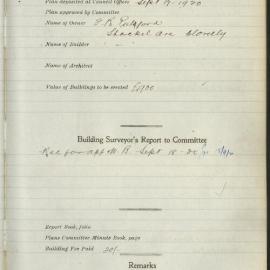 Plan deposited at Council Offices Sept 17 - 1920
Plan approved by Committee
Name of Owner
Shackel Ave Clovelly
Name of Builder
Name of Architect
Value of Buildings to be erected
Building Surveyor's Report to Committee
Rec for app Sept 18 - 20
Report Book, folio
Plans Committee Minute Book, page
Building Fee Paid 20/-
Remarks